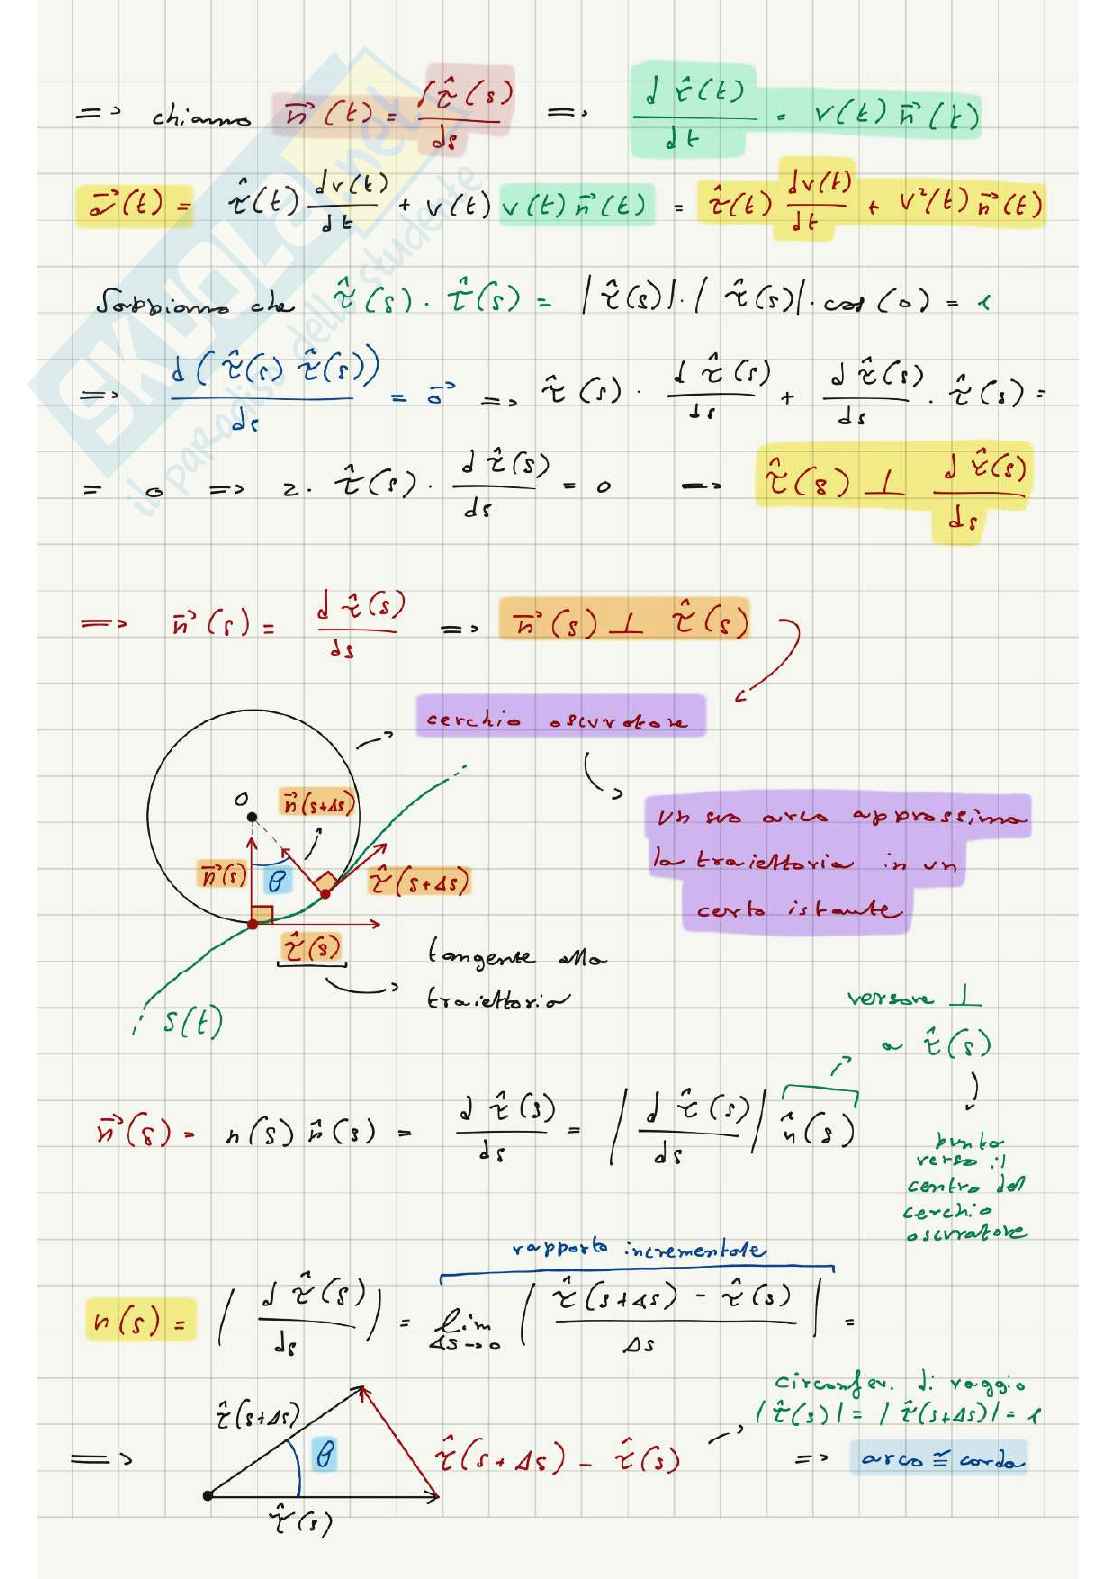 => chiamo n⃗(t) = dτ̂(s)/ds => dτ̂(t)/dt = v(t) n⃗(t)
a⃗(t) = τ̂(t) dv(t)/dt + v(t) v(t) n⃗(t) = τ̂(t) dv(t)/dt + v²(t) n⃗(t)
Sappiamo che τ̂(s) · τ̂(s) = |τ̂(s)| · |τ̂(s)| · cos(0) = 1
=> d(τ̂(s) τ̂(s))/ds = 0⃗ => τ̂(s) · dτ̂(s)/ds + dτ̂(s)/ds · τ̂(s) =
= 0 => 2 · τ̂(s) · dτ̂(s)/ds = 0 => τ̂(s) ⊥ dτ̂(s)/ds
=> n⃗(s) = dτ̂(s)/ds => n⃗(s) ⊥ τ̂(s)
cerchio oscuratore
un suo arco approssima
la traiettoria in un
certo istante
O
n⃗(s+Δs)
n⃗(s)
θ
τ̂(s+Δs)
τ̂(s)
tangente alla
traiettoria
s(t)
versore ⊥
a τ̂(s)
punta
verso il
centro del
cerchio
oscuratore
n⃗(s) = n(s) n̂(s) = dτ̂(s)/ds = |dτ̂(s)/ds| n̂(s)
rapporto incrementale
n(s) = |dτ̂(s)/ds| = lim Δs→0 |(τ̂(s+Δs) - τ̂(s))/Δs| =
circonfer. di raggio
|τ̂(s)| = |τ̂(s+Δs)| = 1
=> τ̂(s+Δs) θ τ̂(s+Δs) - τ̂(s) => arco ≅ corda
τ̂(s)
SKUOLA.net
il paradiso dello studente